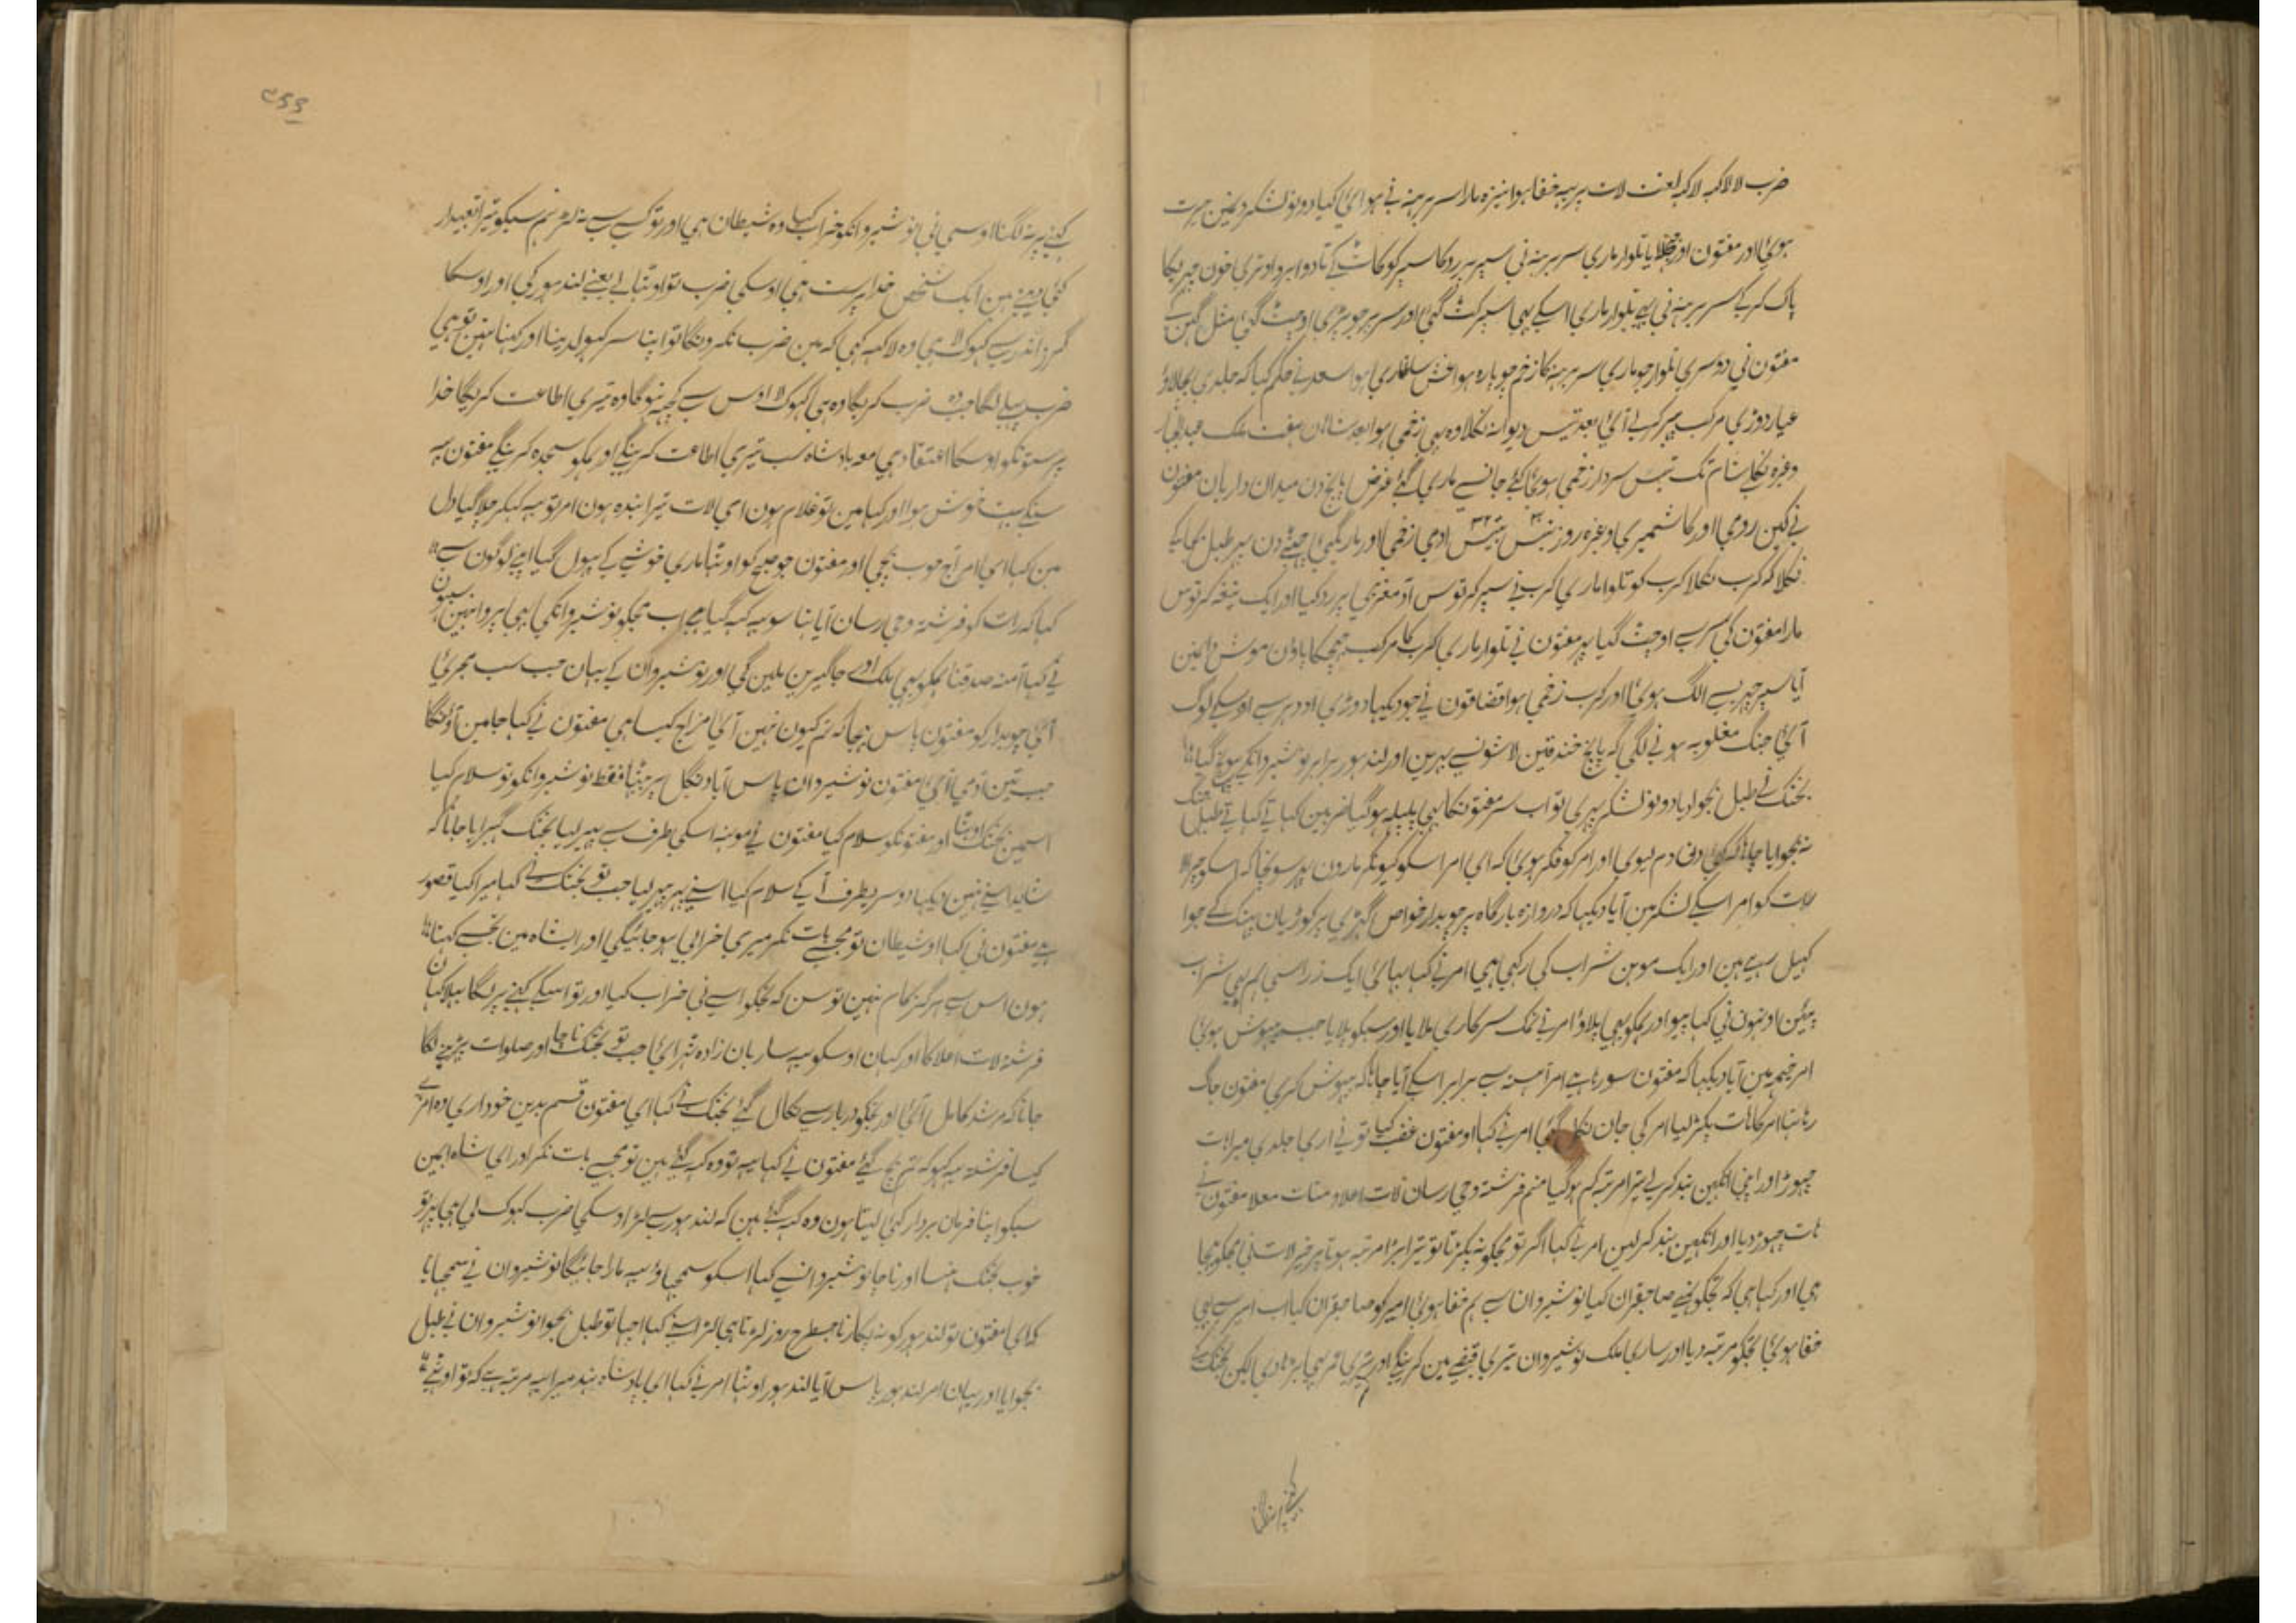 ضرب لا لاکہہ لاکہہ لعنت لات پر یہہ خفا ہوا نیزہ مارا سر برہنہ نی ہوائی کیا دونو لشکر دیکہین حیرت
ہوئی اور مفتون اور جہلایا تلوار ماری سر برہنہ نی سپر پر روکا سپر کو کاٹ کے تا دو ابرو اوتری خون چہریکا
پاک کر کے سر برہنہ نی یہی تلوار ماری اسکے بہی سپر کٹ گئی اور سر پر جو پڑی اوچٹ گئی مثل گہن کے
مفتون نی دوسری تلوار جو ماری سر برہنہ کا زخم چوپارہ ہوا غش سا طاری ہوا سعد نے حکم کیا کہ جلدی بچالاؤ
عیار دوڑی مرکب پر لی آئی بعد تیس دیوانہ نکلا وہ بہی زخمی ہوا بعد شاہان ہفت ملک عبدالجبار
وغیرہ نکلے شام تک تیس سردار زخمی ہوئی کئے جانسے ماری گئے غرض پانچ دن میدان داریان مفتون
نے کین رومی اور کاشمیری وغیرہ روز تیس بتیس آدمی زخمی اور مارے گئے چہٹے دن پہر طبل بجا کے
نکلا کہ کرب نکلا کرب کو تلوار ماری کرب نے سپر کرتوس آدمغربی پر رد کیا اور ایک تیغہ کرتوس
مارا مفتون کی سر سے اوچٹ گیا پہر مفتون نے تلوار ماری کرب کا مرکب جہجکا پاؤن موش مین
آیا سپر چہرسے الگ ہوئی اور کرب زخمی ہوا قضا قون نے جو دیکہا دوڑی اودہر سے اوسکے لوگ
آئی جنگ مغلوبہ ہونے لگی کہ پانچ خندقین لاشونسے بہرین اور لندہور برابر نوشیروانکے پہونچ گیا
بختک نے طبل بجوا دیا دونو لشکر پہری تو اب سر مفتونکا بہی پلپلہ ہوگیا ضربین کہاتے کہاتے طبل جنگ
نہ بجوایا جانا کہ کئی دن دم لیوی اور امر کو فکر ہوئی کہ ای امر اسکو کیونکر مارون پہر سونچا کہ اسکو چہڑ
رات کو امر اسکے لشکر مین آیا دیکہا کہ دروازہ بارگاہ پر چوبدار خواص گہڑی پر کوڑیان پہنک کے جوا
کہیل رہے ہین اور ایک موہن شراب کی رکہی ہی امر نے کہا بہائی ایک ذراسی ہم بہی شراب
پیئین اونہون نی کہا پیو اور ہمکو بہی پلاؤ امر نے نمک سرکاری ملایا اور سبکو پلایا جب بیہوش ہوئی
امر خیمہ مین آیا دیکہا کہ مفتون سورہا ہے امر آہستہ سے برابر اسکے آیا چاہا کہ بیہوش کری مفتون جاگ
رہا تہا امر کا ہات پکڑ لیا امر کی جان نکل گئی امر نے کہا او مفتون غضب کیا تونے اری جلدی میرا ہات
چہوڑ اور اپنی آنکہین بند کر لے تیرا مرتبہ کم ہوگیا منم فرشتہ وحی رسان لات اعلا و منات معلا مفتون نے
ہات چہوڑ دیا اور آنکہین بند کر لین امر نے کہا اگر تو مجکو نہ پکڑتا تو تیرا بڑا مرتبہ ہوتا پر خیر لاتنی مجکو بہیجا
ہی اور کہا ہی کہ تجکو ہمنے صاحبقران کیا نوشیروان سے ہم خفا ہوئی امیر کو صاحبقران کیا اب امیر سے بہی
خفا ہوئی تجکو مرتبہ دیا اور ساری ملک نوشیروان تیری قبضے مین کرینگے اور تیری عمر بہی بڑہا دی لیکن بختک کے
کہنے پر نہ لگنا
۹۵۵
کہنے پر نہ لگنا اوسی نی نوشیروانکو خراب کیا وہ شیطان ہی اور تو کسی سے نہ لڑ ہم سبکو تیرا تعبیدار
کئی دیتے ہین ایک شخص خدا پرست ہی اوسکی ضرب تو اوٹہا لے یعنے لندہور کی اور اوسکا
گرز اندر سے کہوکلا ہی وہ لاکہہ کہی کہ مین ضرب نکرونگا تو اپنا سر کہولدینا اور کہنا نہین تو ہی
ضرب پہلے لگا جب وہ ضرب کریگا وہ ہی کہوکلا اوس سے کچہہ نہوگا وہ تیری اطاعت کریگا خدا
پرستونکو اوسکا اعتقاد ہی معہ بادشاہ سب تیری اطاعت کرینگے اور ہمکو سجدہ کرینگے مفتون یہہ
سنکے بہت خوش ہوا اور کہا مین تو غلام ہون ای لات تیرا بندہ ہون امر تو یہہ کہکر چلا گیا دل
مین کہا ای امر آج خوب بچی اور مفتون جو صبح کو اوٹہا ماری خوشی کے پہول گیا اپنے لوگون سے
کہا کہ رات کو فرشتہ وحی رسان آیا تہا سو یہہ کہہ گیا ہے اب مجکو نوشیروانکی بہی پروا نہین سبہون
نے کہا آمنہ صدقنا ہمکو بہی ملک اور جاگیرین ملین گی اور نوشیروان کے یہان جب سب مجرئی
آئی چوبدار کو مفتون پاس بہیجا کہ تم کیون نہین آئی مزاج کیسا ہی مفتون نے کہا جا مین آونگا
جب تین آدمی آئی مفتون نوشیروان پاس آیا دنگل پر بیٹہا فقط نوشیروانکو تو سلام کیا
اسمین بختک اوٹہا اور مفتونکو سلام کیا مفتون نے مونہہ اسکی طرف سے پہیر لیا بختک گہبرایا جانا کہ
شاید اسنے نہین دیکہا دوسری طرف آ کے سلام کیا اسنے پہر پہیر لیا جب تو بختک نے کہا میرا کیا قصور
ہے مفتون نی کہا او شیطان تو مجہسے بات نکر میری خرابی ہو جائیگی اور ای شاہ مین تجہسے کہتا
ہون اس سے ہرگز کام نہین تو سن کہ تجکو اسے نی خراب کیا اور تو اسیکے کہنے پر لگا بہلا کہان
فرشتہ لات اعلا کا اور کہان اوسکو یہہ ساربان زادہ ٹہرائی جب تو بختک ناچا اور صلوات پڑہنے لگا
جانا کہ مرشد کامل آئی اور مجکو دربارسے نکال گئے بختک نے کہا ای مفتون قسم بدین خود اری وہ امر ہے
کیسا فرشتہ یہہ کہو کہ تم بچ گئے مفتون نے کہا یہہ تو وہ کہہ گئے ہین تو مجہسے بات نکر اور ای شاہ ابہی مین
سبکو اپنا فرمان بردار کئی لیتا ہون وہ کہہ گئے ہین کہ لندہور سے لڑ اوسکی ضرب کہوکلی ہی پہر تو
خوب بختک ہنسا اور ناچا نوشیروانسے کہا اسکو سمجہاؤ یہہ مارا جائیگا نوشیروان نے سمجہایا
کہ ای مفتون تو لندہور کو نہ پکارنا جسطرح روز لڑتا ہی لڑ اسنے کہا اچہا تو طبل بجوا نوشیروان نے طبل
بجوایا اور یہان امر لندہور پاس آیا لندہور اوٹہا امر نے کہا ای بادشاہ ہند میرا یہہ مرتبہ ہے کہ تو اوٹہے